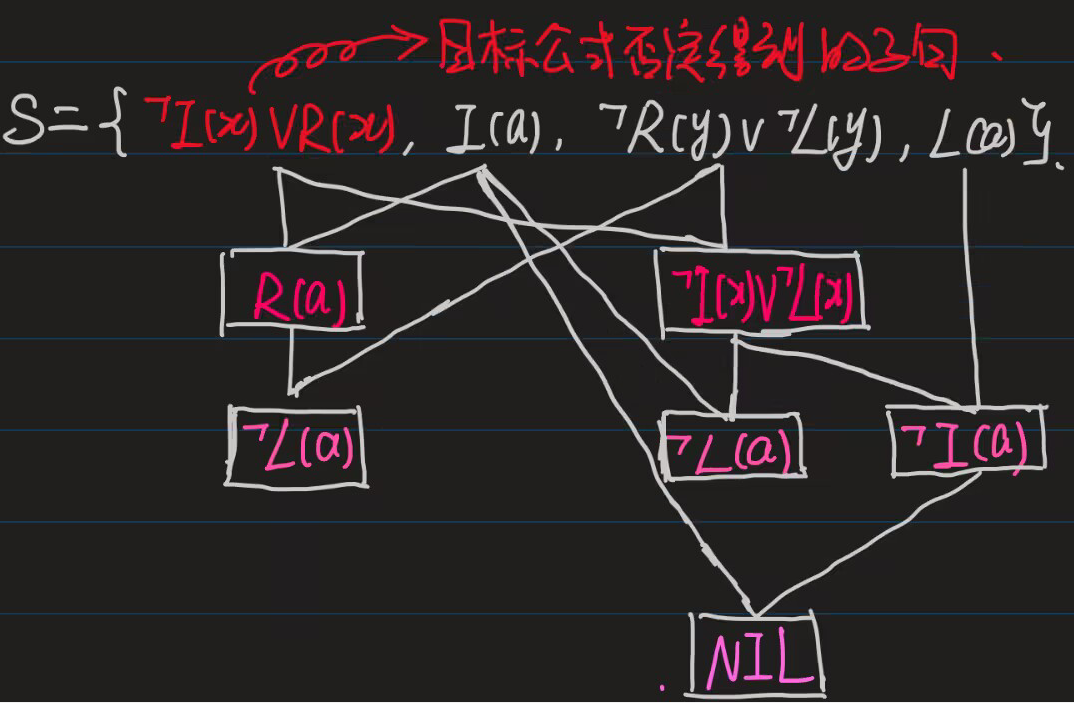 目标公式否定得到的子句.
S={ ¬I(x)∨R(x), I(a), ¬R(y)∨¬L(y), L(a)}.
R(a) ¬I(x)∨¬L(x)
¬L(a) ¬L(a) ¬I(a)
NIL